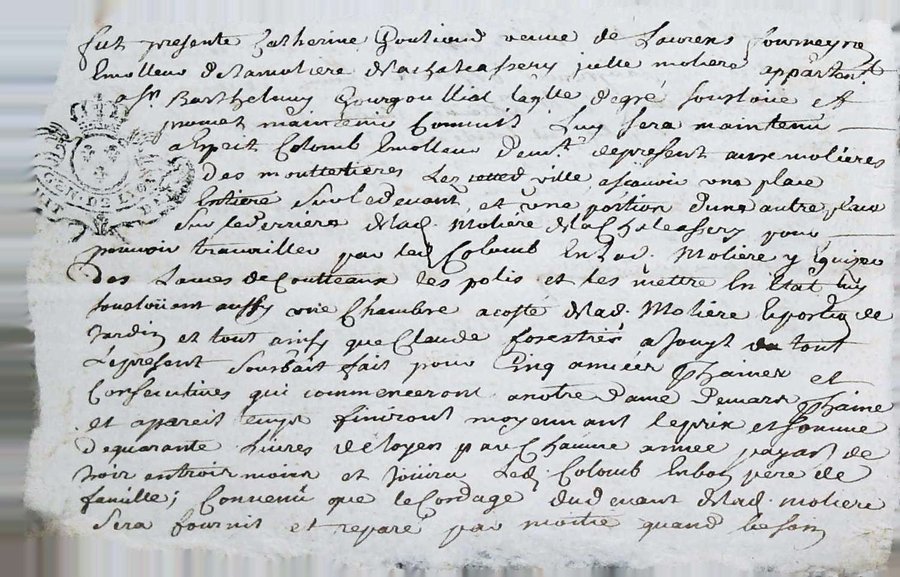 fut presente Catherine Goutiond veuve de Laurens Fourneyro
Emolleur de la moliere de la chateassery julle moliere appartent
a Sr Barthelmy Gourgoulliat laqlle degré souslove et
promet maintenir
a Esprit Colomb Emolleur present aux molieres
des moulletieres Les cette ville, ascavoir une place
Entiere sur le devant, et une portion dune autre place
sur le derriere de lad. Moliere de la Chateassery pour
pouvoir travailler par led Colomb En lad. Moliere y Equiper
des Lames de Coutteaux les polis et les mettre En Etat luy
souslouant aussy une Chambre a costé de lad. Moliere Eportion de
Jardin et tout ainsy que Claude forestier a Jouyt du tout
Le present Sousbail fait pour Cinq années et
Consecutives qui commenceront a notre dame de mars
et a pareil temps finiront moyennant le prix et somme
de quarante Livres de Loyer par Chacune année payant de
trois en trois mois et Jouira Led. Colomb En bon pere de
famille; Convenu que le Cordage du devant de lad. moliere
sera fournit et reparé par moitié quand besoin